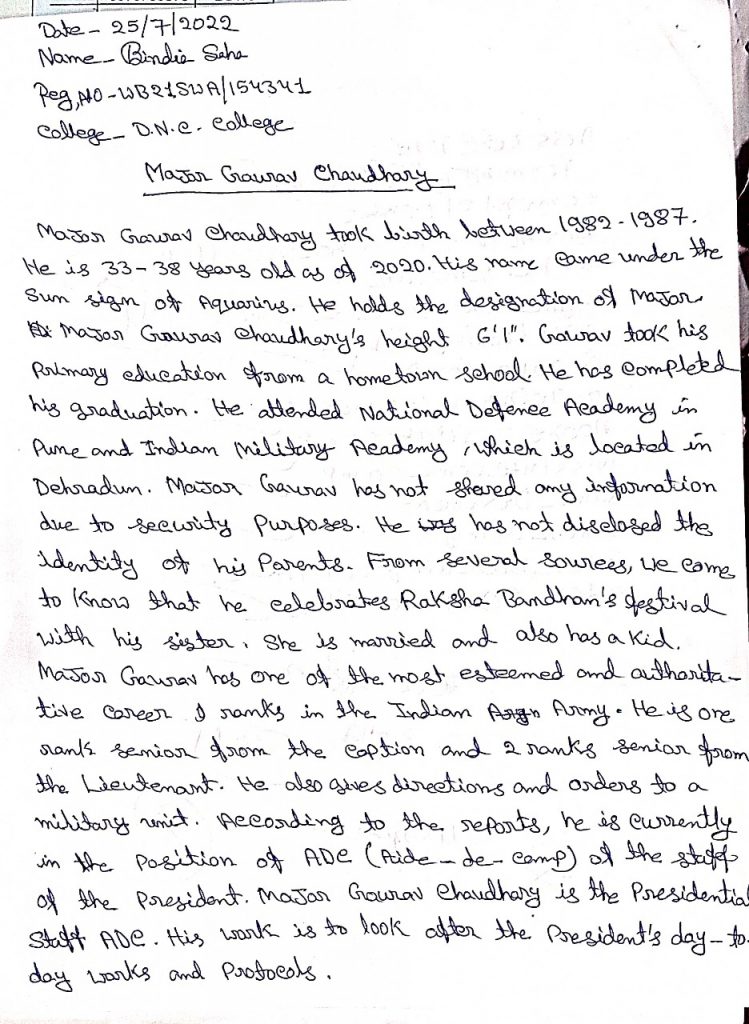 Date - 25/7/2022
Name - Bindia Saha
Reg, NO - WB21SWA/154341
College - D.N.C. College
Major Gaurav Chaudhary
Major Gaurav Chaudhary took birth between 1982-1987.
He is 33-38 years old as of 2020. His name came under the
Sun sign of Aquarius. He holds the designation of Major.
Major Gaurav Chaudhary's height 6'1". Gaurav took his
Primary education from a hometown school. He has completed
his graduation. He attended National Defence Academy in
Pune and Indian Military Academy, which is located in
Dehradun. Major Gaurav has not shared any information
due to security Purposes. He was has not disclosed the
Identity of his Parents. From several sources, we came
to know that he celebrates Raksha Bandhan's festival
with his sister. She is married and also has a kid.
Major Gaurav has one of the most esteemed and authorita-
tive career & ranks in the Indian Army. He is one
rank senior from the caption and 2 ranks senior from
the Lieutenant. He also gives directions and orders to a
military unit. According to the reports, he is currently
in the position of ADC (Aide-de-camp) of the staff
of the President. Major Gaurav Chaudhary is the Presidential
Staff ADC. His work is to look after the President's day-to-
day works and Protocols.